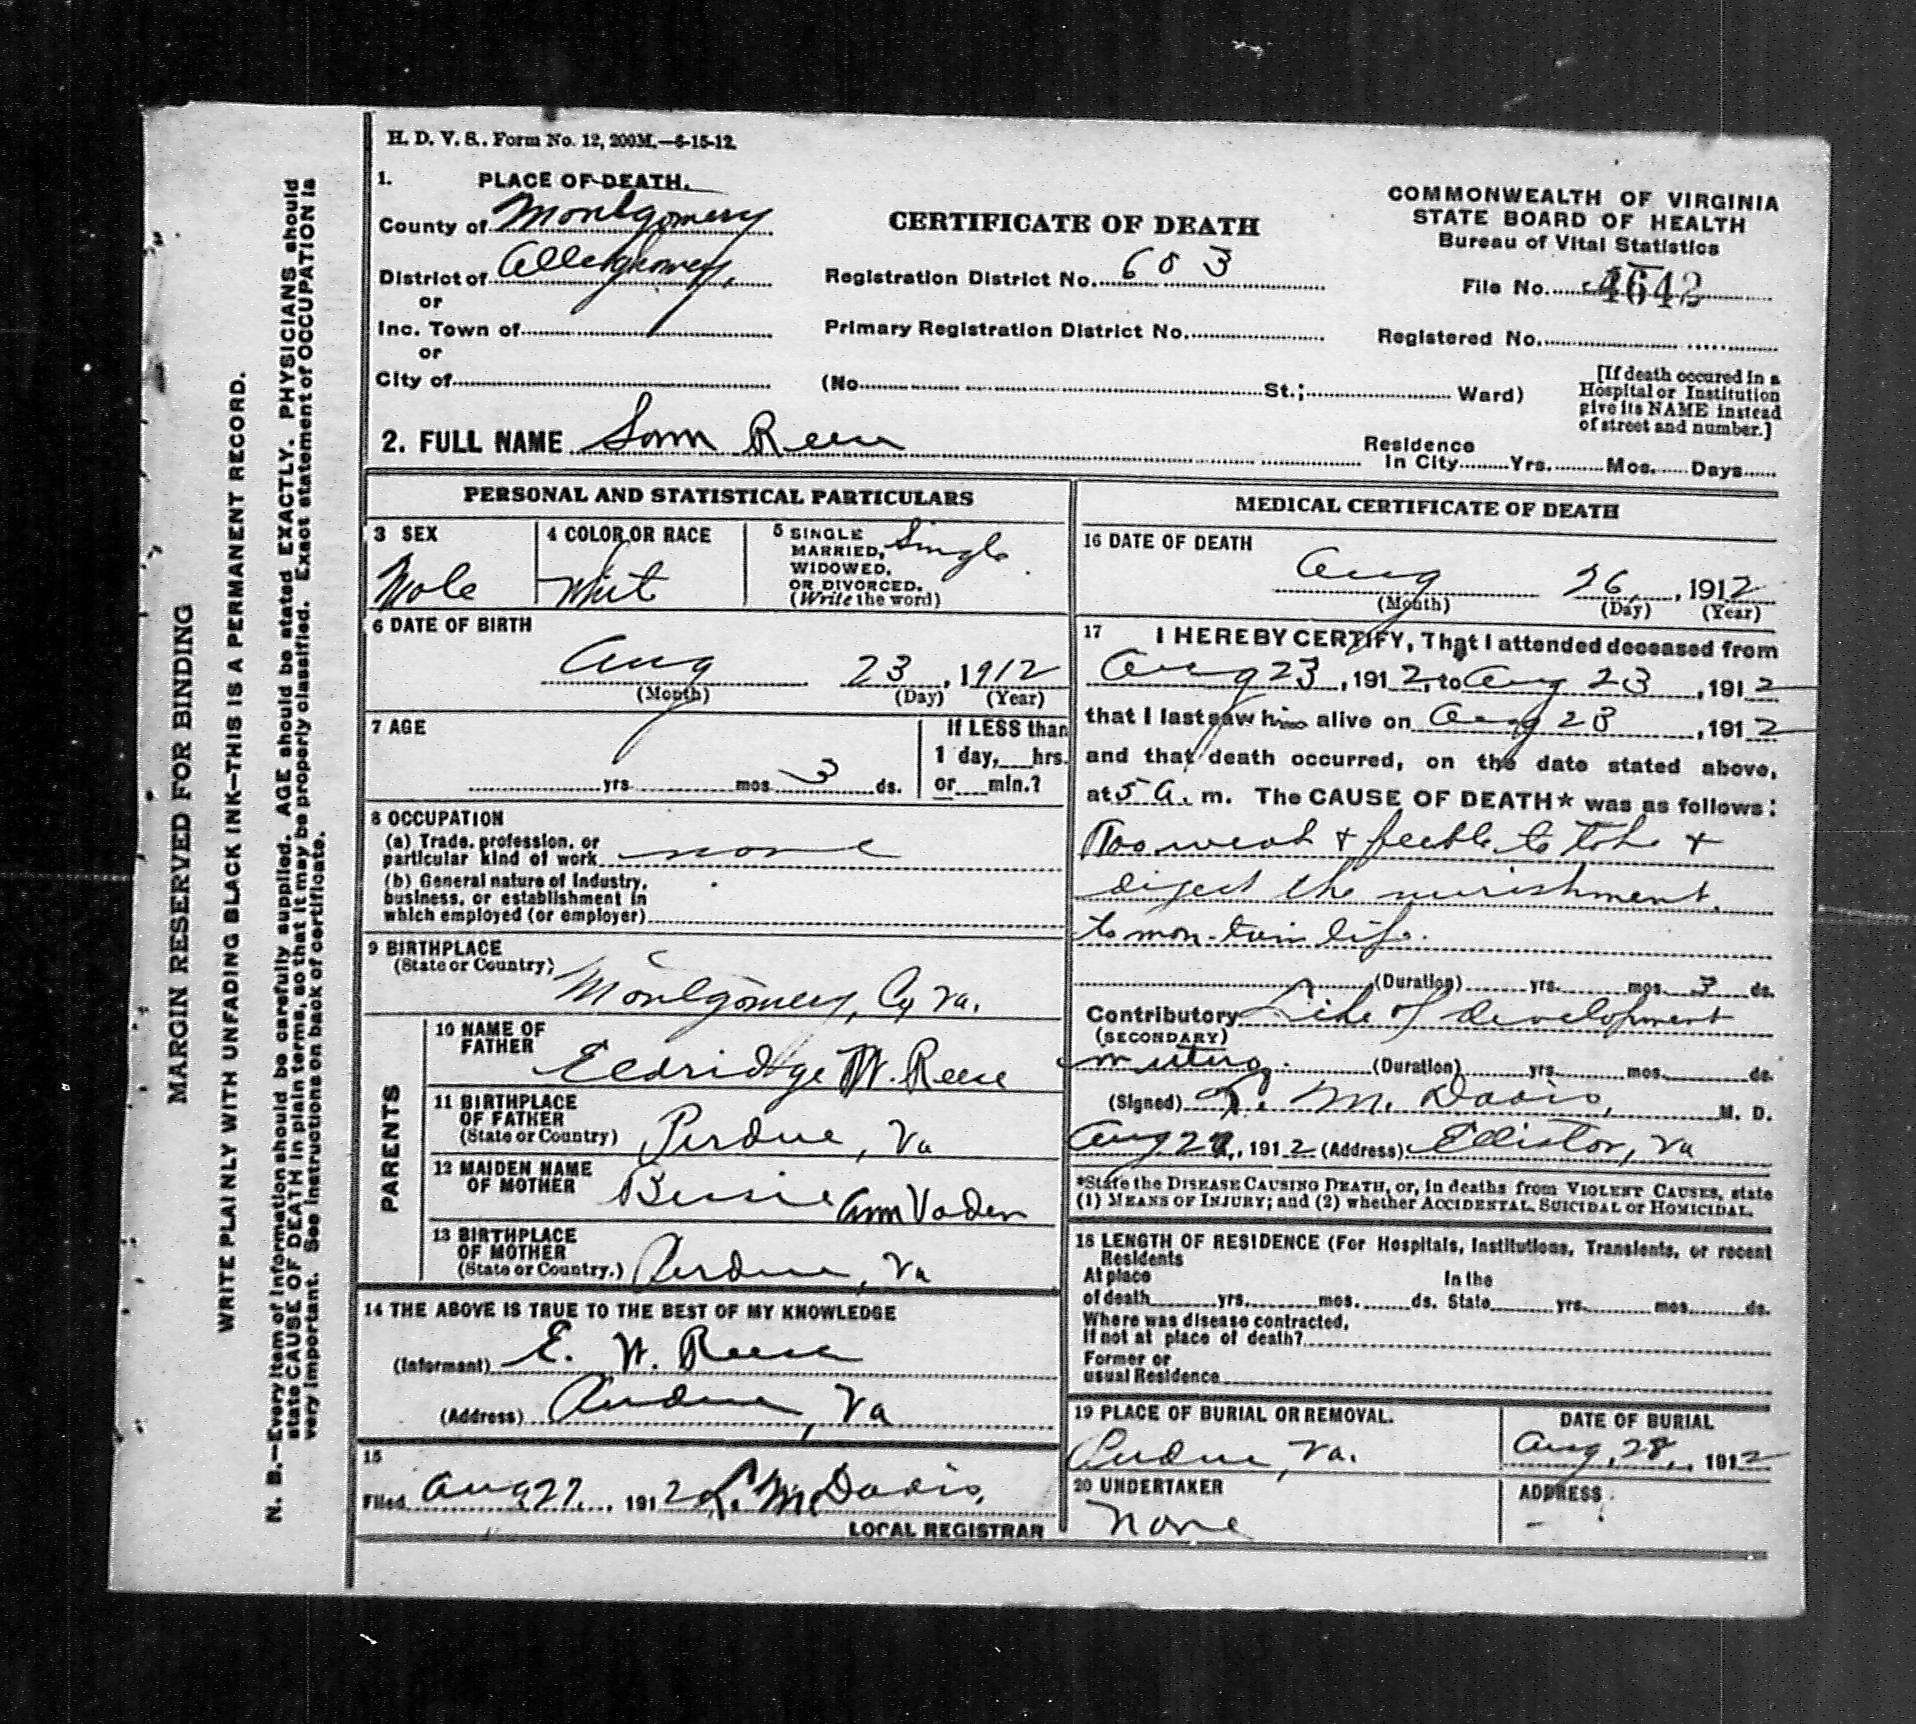 H. D. V. S. Form No. 12, 200M.—6-15-12.
1. PLACE OF DEATH.
County of Montgomery
District of Alleghaney,
or
Inc. Town of
or
City of
CERTIFICATE OF DEATH
Registration District No. 603
Primary Registration District No.
(No. St.; Ward)
COMMONWEALTH OF VIRGINIA
STATE BOARD OF HEALTH
Bureau of Vital Statistics
File No. 4642
Registered No.
[If death occured in a
Hospital or Institution
give its NAME instead
of street and number.]
2. FULL NAME Sam Reese
Residence
In City Yrs. Mos. Days
PERSONAL AND STATISTICAL PARTICULARS
3 SEX
Male
4 COLOR OR RACE
Whit
5 SINGLE
MARRIED,
WIDOWED,
OR DIVORCED.
(Write the word)
Single
6 DATE OF BIRTH
Aug 23, 1912
(Month) (Day) (Year)
7 AGE
yrs. mos. 3 ds.
If LESS than
1 day, hrs.
or min.?
8 OCCUPATION
(a) Trade, profession, or
particular kind of work none
(b) General nature of Industry,
business, or establishment in
which employed (or employer)
9 BIRTHPLACE
(State or Country)
Montgomery, Co, Va.
PARENTS
10 NAME OF
FATHER
Eldridge W. Reese
11 BIRTHPLACE
OF FATHER
(State or Country)
Perdue, Va
12 MAIDEN NAME
OF MOTHER
Bessie Ann Vaden
13 BIRTHPLACE
OF MOTHER
(State or Country.)
Perdue, Va
14 THE ABOVE IS TRUE TO THE BEST OF MY KNOWLEDGE
(Informant) E. W. Reese
(Address) Perdue, Va
15
Filed Aug 27, 1912 L. M. Davis,
LOCAL REGISTRAR
MEDICAL CERTIFICATE OF DEATH
16 DATE OF DEATH
Aug 26, 1912
(Month) (Day) (Year)
17 I HEREBY CERTIFY, That I attended deceased from
Aug 23, 1912, to Aug 23, 1912
that I last saw him alive on Aug 23, 1912
and that death occurred, on the date stated above,
at 5 a. m. The CAUSE OF DEATH* was as follows:
Too weak + feeble to take +
digest the nurishment
to mon-tain life.
(Duration) yrs. mos. 3 ds.
Contributory of development
(SECONDARY)
(Duration) yrs. mos. ds.
(Signed) L. M. Davis, M. D.
Aug 27, 1912 (Address) Elliston, Va
*State the DISEASE CAUSING DEATH, or, in deaths from VIOLENT CAUSES, state
(1) MEANS OF INJURY; and (2) whether ACCIDENTAL, SUICIDAL or HOMICIDAL.
18 LENGTH OF RESIDENCE (For Hospitals, Institutions, Transients, or recent
Residents
At place In the
of death yrs. mos. ds. State yrs. mos. ds.
Where was disease contracted,
if not at place of death?
Former or
usual Residence
19 PLACE OF BURIAL OR REMOVAL.
Perdue, Va.
DATE OF BURIAL
Aug, 28, 1912
20 UNDERTAKER
None
ADDRESS
-
MARGIN RESERVED FOR BINDING
WRITE PLAINLY WITH UNFADING BLACK INK—THIS IS A PERMANENT RECORD.
N. B.—Every item of information should be carefully supplied. AGE should be stated EXACTLY. PHYSICIANS should
state CAUSE OF DEATH in plain terms, so that it may be properly classified. Exact statement of OCCUPATION is
very important. See instructions on back of certificate.